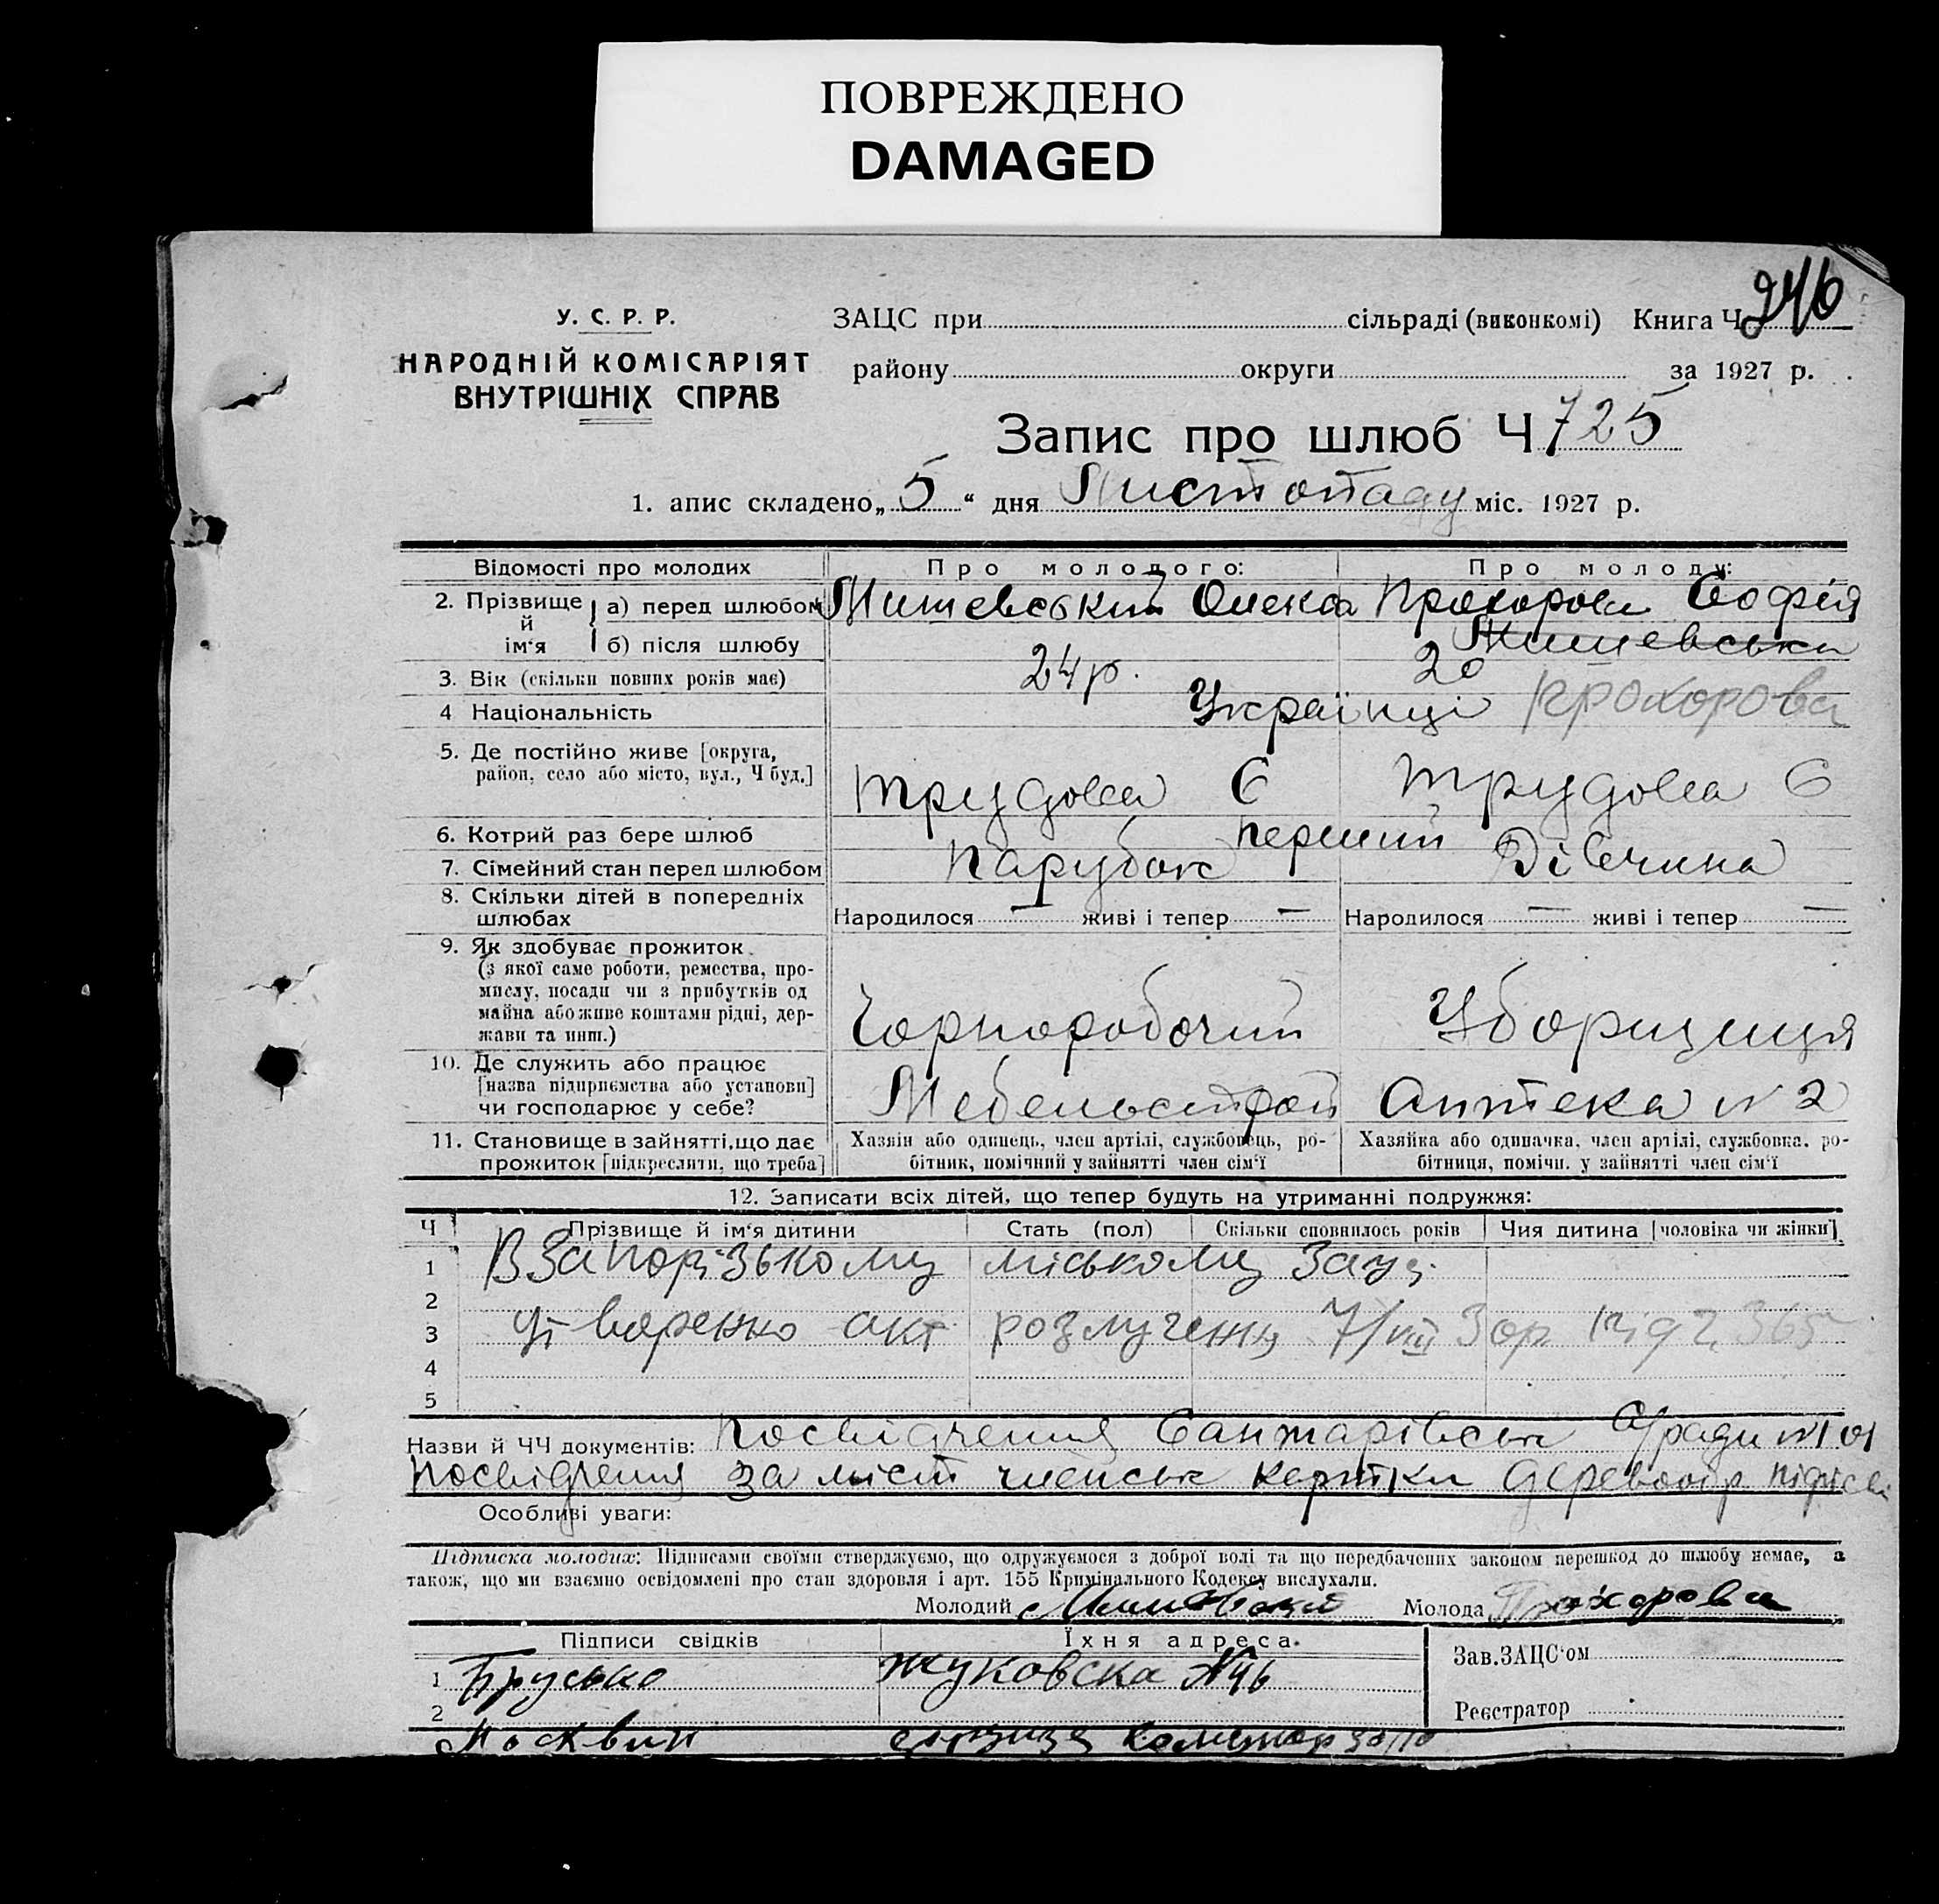 ПОВРЕЖДЕНО
DAMAGED
246
У. С. Р. Р.
НАРОДНІЙ КОМІСАРІЯТ
ВНУТРІШНІХ СПРАВ
ЗАЦС при сільраді (виконкомі) Книга Ч
району округи за 1927 р.
Запис про шлюб Ч 725
1. апис складено „5“ дня Листопаду міс. 1927 р.
Відомості про молодих Про молодого: Про молоду:
2. Прізвище й ім‘я
а) перед шлюбом Олекса Прохорова Софія
б) після шлюбу
3. Вік (скільки повних років має) 24 р. 20
4 Національність Українці Прохорова
5. Де постійно живе [округа,
район, село або місто, вул., Ч буд.] Трудова 6 Трудова 6
6. Котрий раз бере шлюб перший
7. Сімейний стан перед шлюбом Парубок Дівчина
8. Скільки дітей в попередніх
шлюбах Народилося — живі і тепер — Народилося — живі і тепер —
9. Як здобуває прожиток
(з якої саме роботи, ремества, про-
мислу, посади чи з прибутків од
майна або живе коштами рідні, дер-
жави та инш.) Чорноробочий Уборщиця
10. Де служить або працює
[назва підприємства або установи]
чи господарює у себе? Аптека № 2
11. Становище в зайнятті, що дає
прожиток [підкреслити, що треба]
Хазяїн або одинець, член артілі, службовець, ро-
бітник, помічний у зайнятті член сім‘ї
Хазяйка або одиначка, член артілі, службовка, ро-
бітниця, помічн. у зайнятті член сім‘ї
12. Записати всіх дітей, що тепер будуть на утриманні подружжя:
Ч Прізвище й ім‘я дитини Стать (пол) Скільки сповнилось років Чия дитина [чоловіка чи жінки]
1 В Запорізькому міському Загсі
2
3 утворенно акт розлучення 7/VIII 30р. під ч. 365
4
5
Назви й ЧЧ документів: Посвідчення С/ради
Посвідчення за
Особливі уваги:
Підписка молодих: Підписами своїми стверджуємо, що одружуємося з доброї волі та що передбачених законом перешкод до шлюбу немає, а
також, що ми взаємно освідомлені про стан здоровля і арт. 155 Кримінального Кодексу вислухали.
Молодий Молода Прохорова
Підписи свідків Їхня адреса.
1 Жуковска № 46
2 Москвин
Зав. ЗАЦС‘ом
Реєстратор